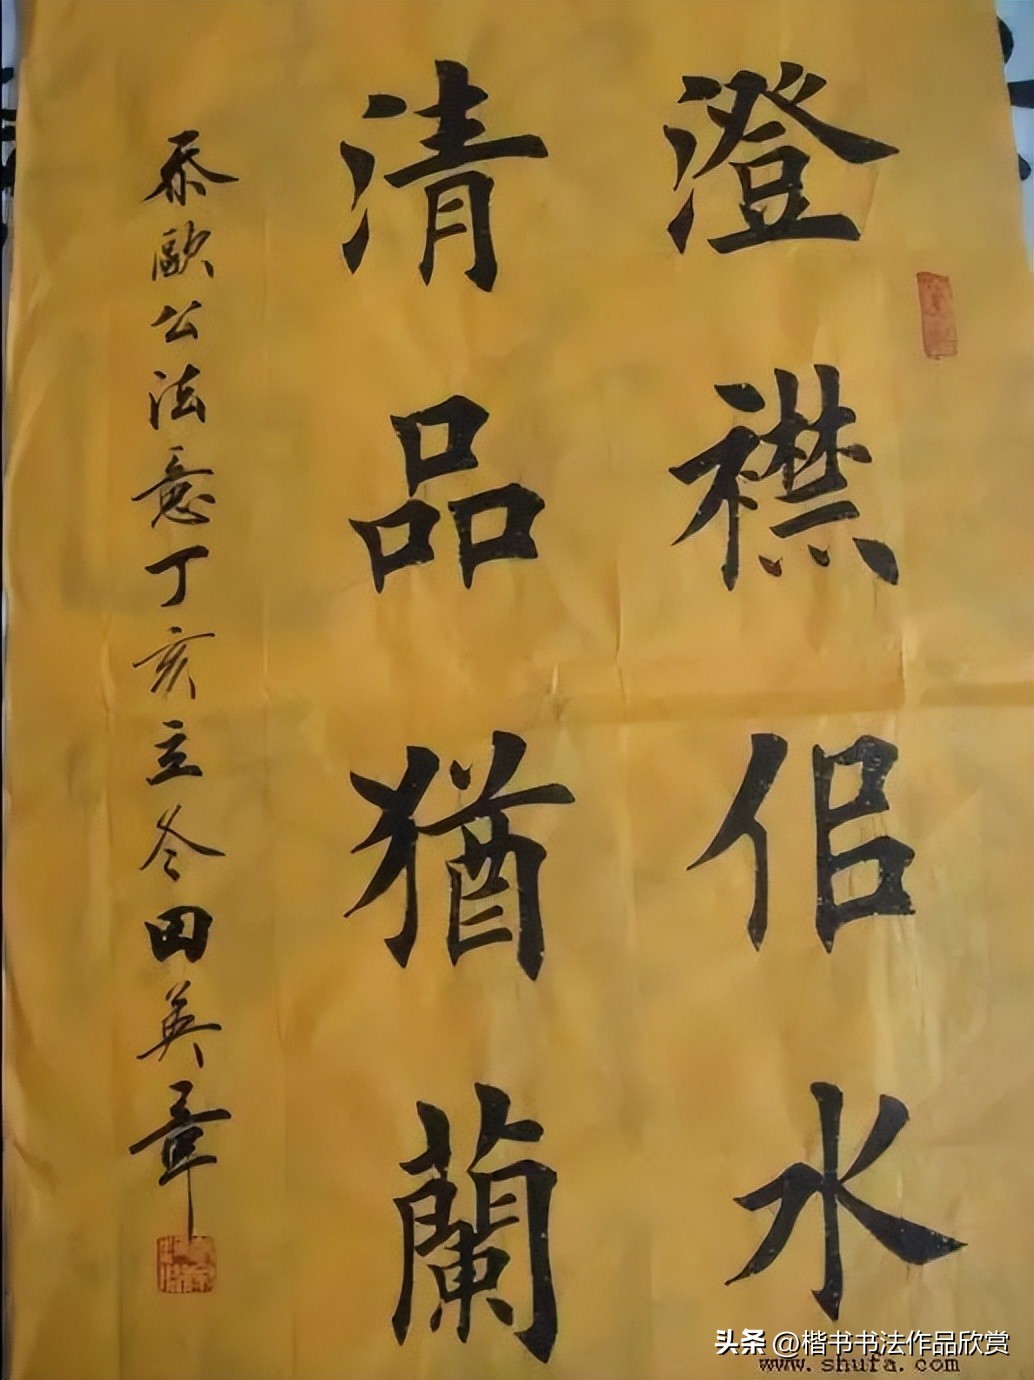 澄襟佀水
清品猶蘭
忝歐公法意丁亥立冬田英章
头条 @楷书书法作品欣赏
www.shufa.com